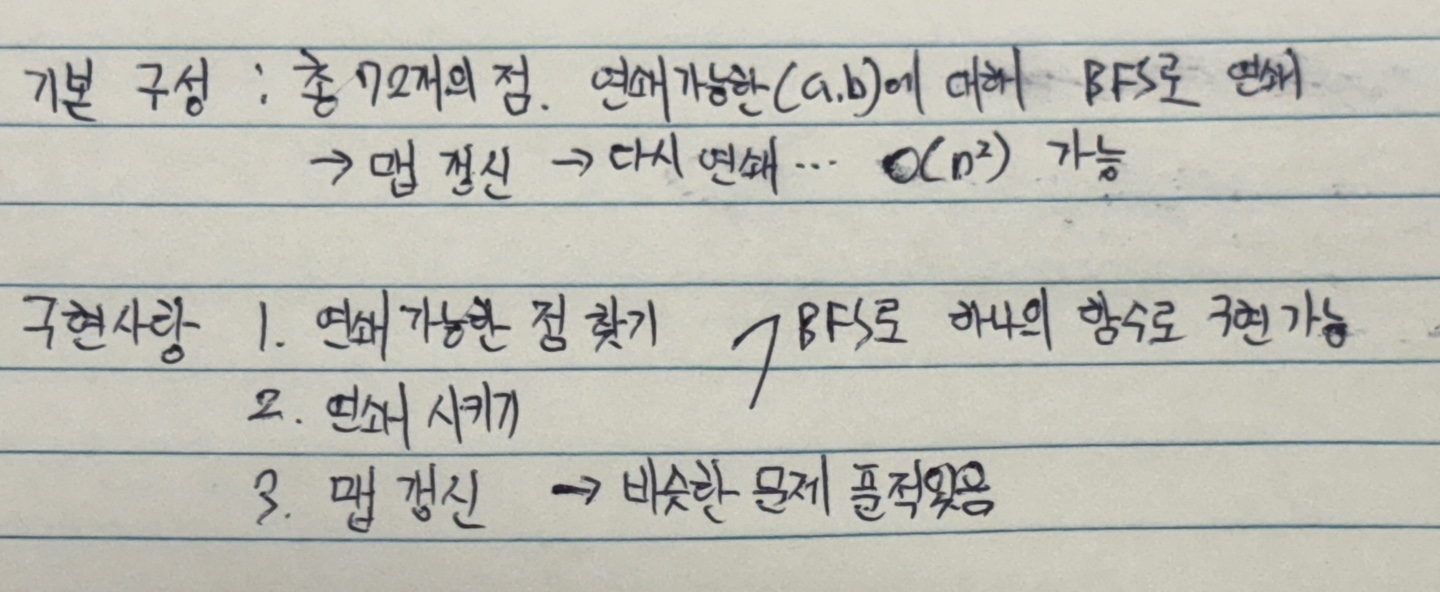 기본 구성 : 총 72개의 점. 연쇄가능한(a.b)에 대해 BFS로 연쇄
→ 맵 갱신 → 다시 연쇄… O(n²) 가능
구현사항 1. 연쇄가능한 점 찾기 BFS로 하나의 함수로 구현가능
2. 연쇄 시키기
3. 맵 갱신 → 비슷한 문제 푼적있음